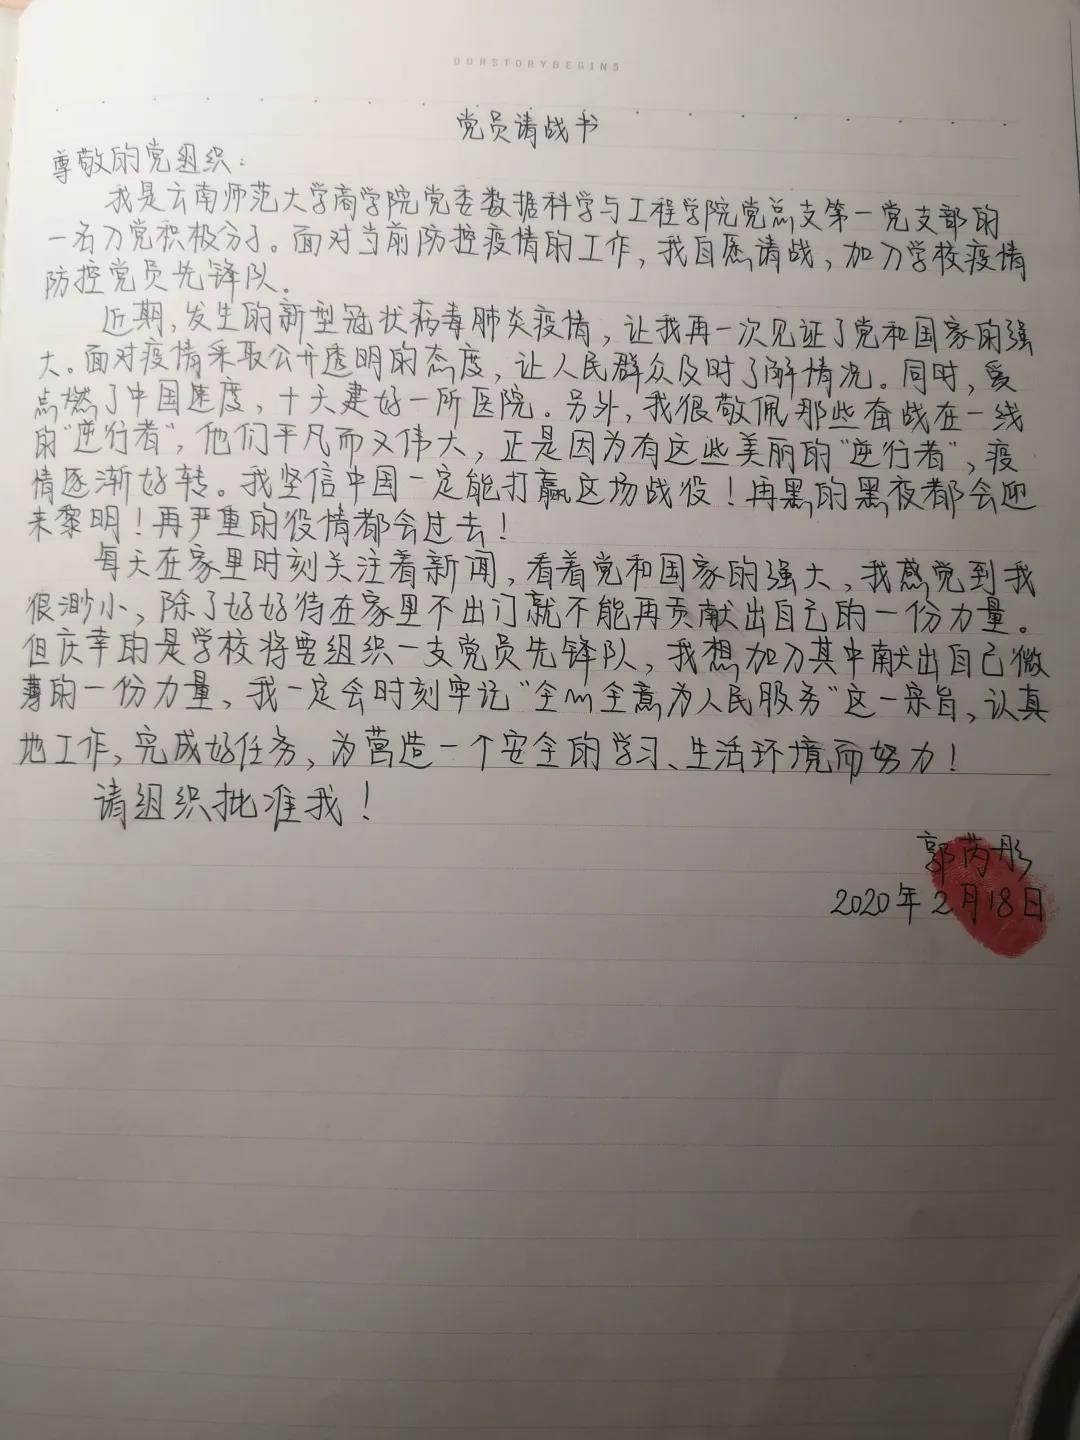 OURSTORYBEGINS
党员请战书
尊敬的党组织：
我是云南师范大学商学院党委数据科学与工程学院党总支第一党支部的
一名入党积极分子。面对当前防控疫情的工作，我自愿请战，加入学校疫情
防控党员先锋队。
近期，发生的新型冠状病毒肺炎疫情，让我再一次见证了党和国家的强
大。面对疫情采取公开透明的态度，让人民群众及时了解情况。同时，爱
点燃了中国速度，十天建好一所医院。另外，我很敬佩那些奋战在一线
的“逆行者”，他们平凡而又伟大，正是因为有这些美丽的“逆行者”，疫
情逐渐好转。我坚信中国一定能打赢这场战役！再黑的黑夜都会迎
来黎明！再严重的役情都会过去！
每天在家里时刻关注着新闻，看着党和国家的强大，我感觉到我
很渺小，除了好好待在家里不出门就不能再贡献出自己的一份力量。
但庆幸的是学校将要组织一支党员先锋队，我想加入其中献出自己微
薄的一份力量，我一定会时刻牢记“全心全意为人民服务”这一宗旨，认真
地工作，完成好任务，为营造一个安全的学习、生活环境而努力！
请组织批准我！
郭芮彤
2020年2月18日